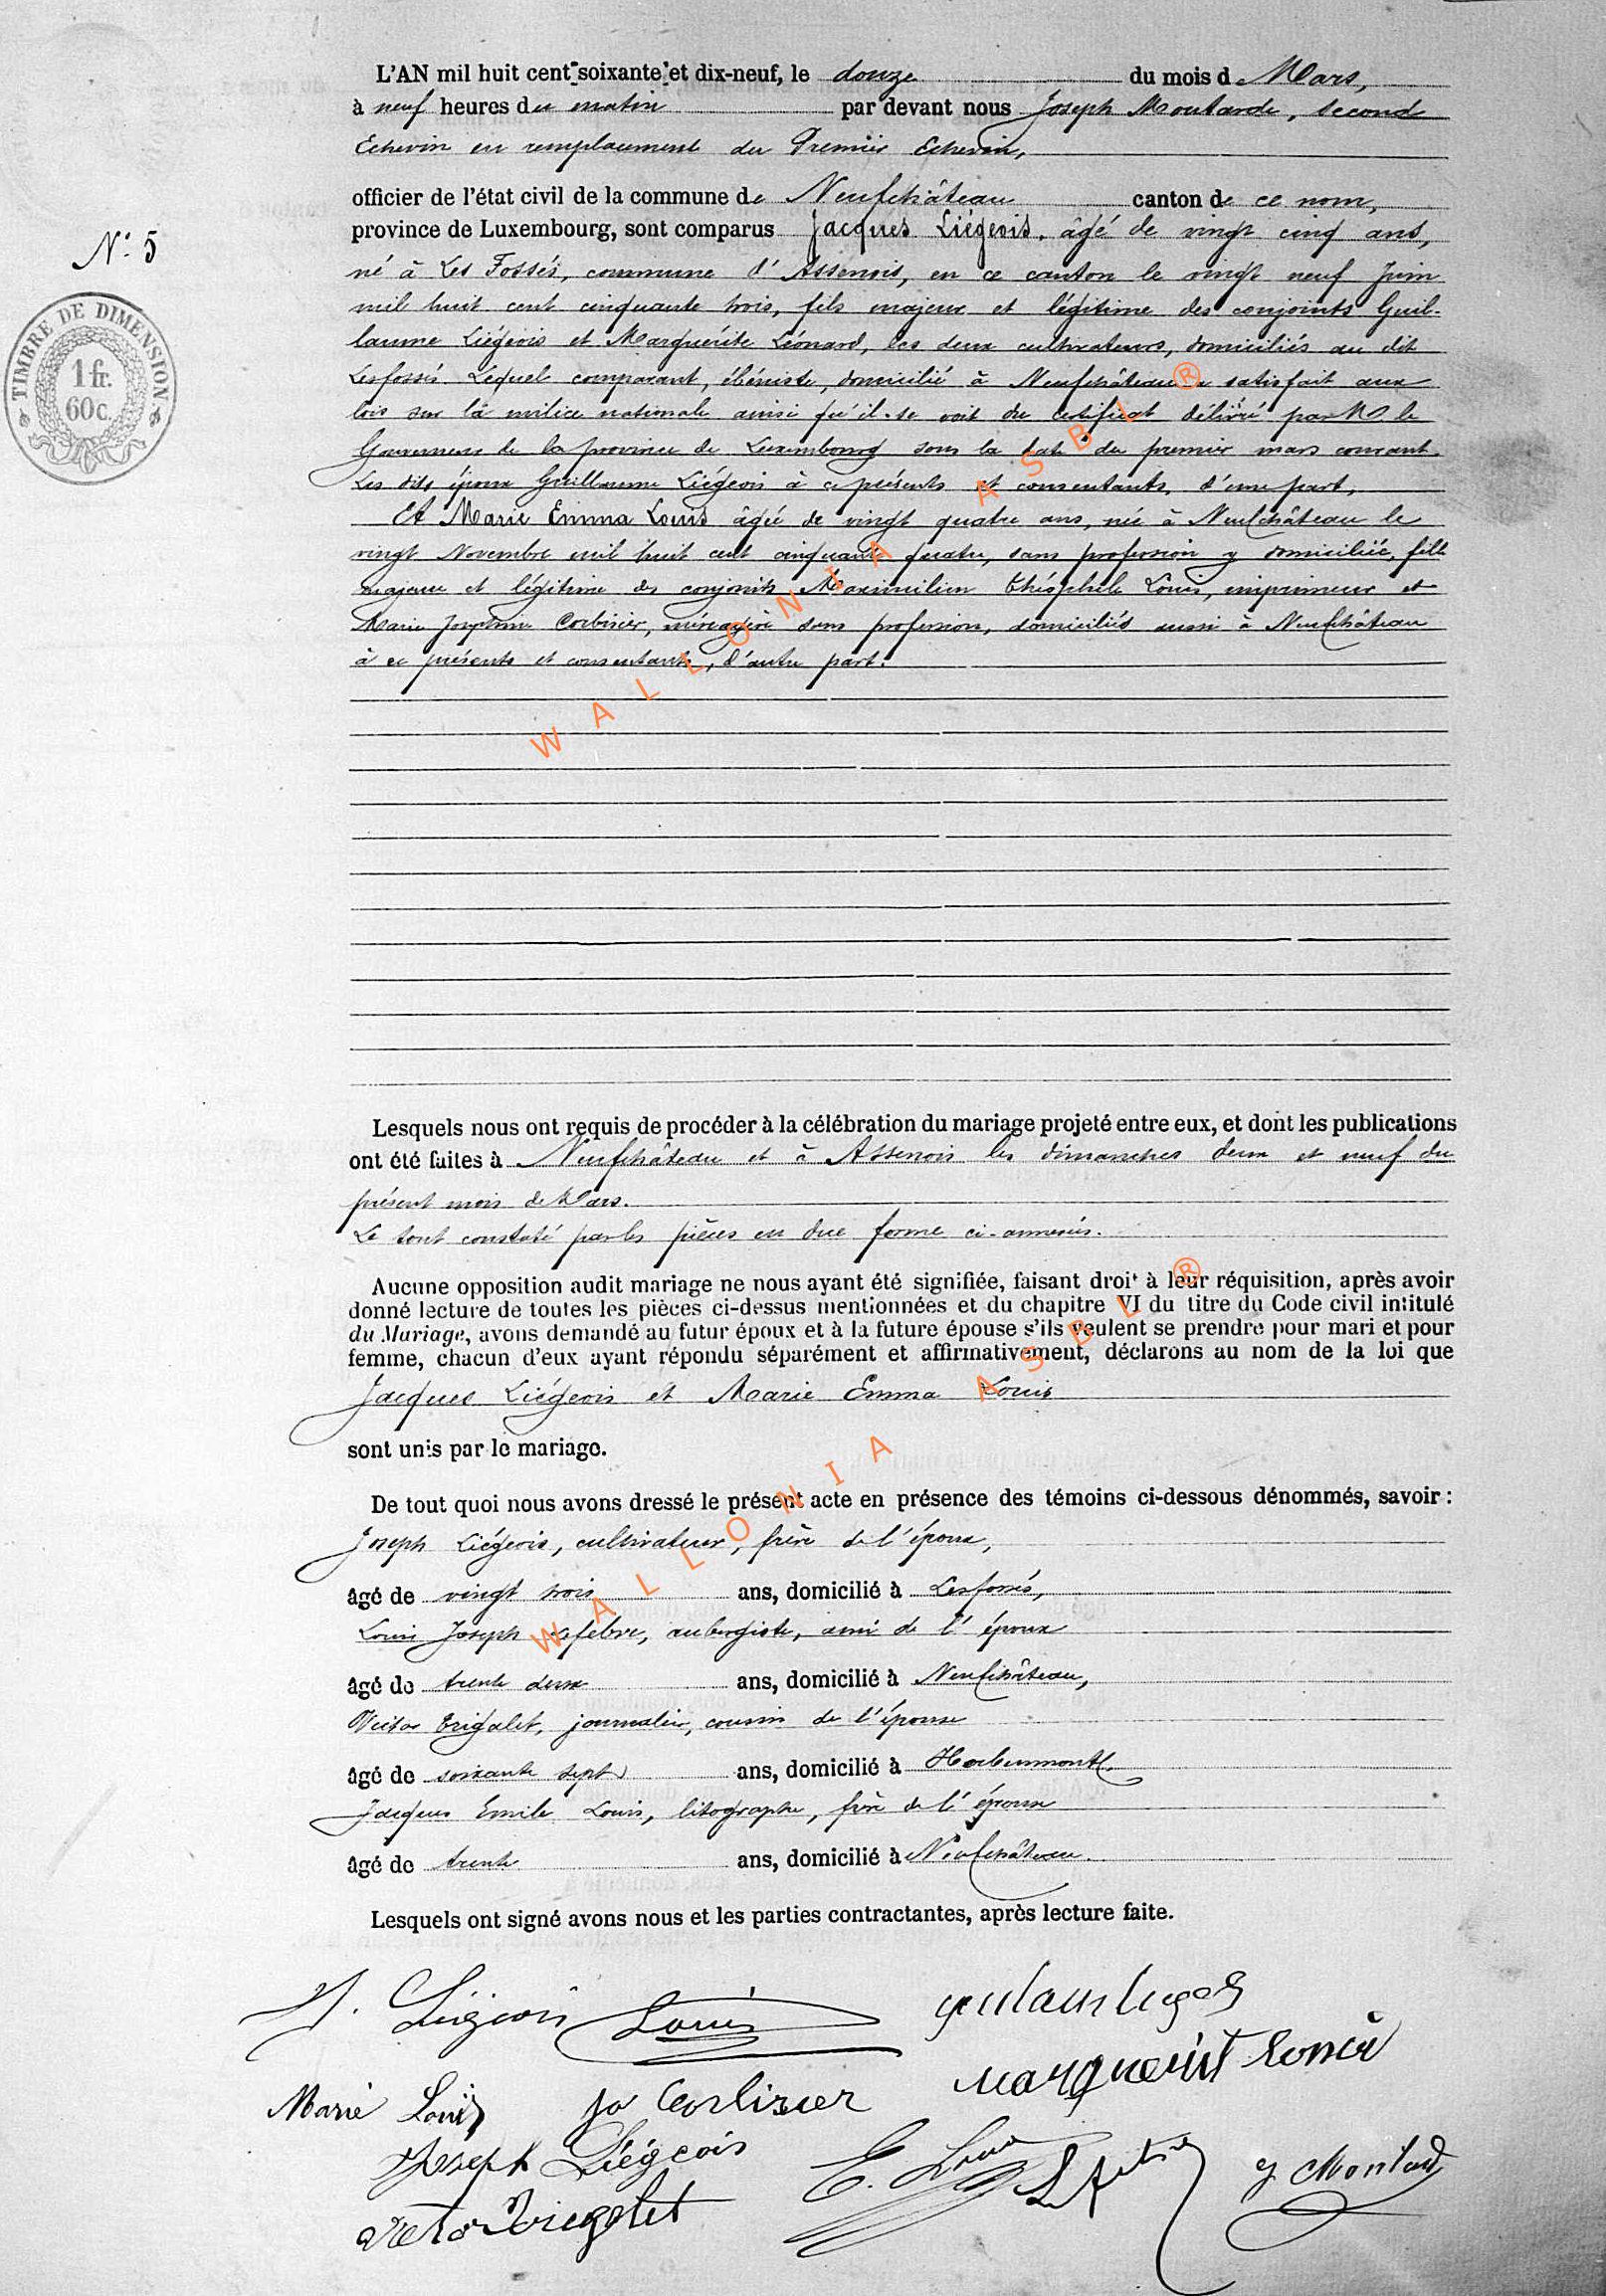 L'AN mil huit cent soixante et dix-neuf, le douze du mois d Mars,
à neuf heures du matin par devant nous Joseph Moutarde, second
Echevin en remplacement du Premier Echevin,
officier de l'état civil de la commune de Neufchâteau canton de ce nom,
province de Luxembourg, sont comparus Jacques Liégeois, âgé de vingt cinq ans,
N.º 5
né à Les Fossés, commune d'Assenois, en ce canton le vingt neuf Juin
TIMBRE DE DIMENSION
1 fr.
60 c.
mil huit cent cinquante trois, fils majeur et légitime des conjoints Guil-
laume Liégeois et Marguérite Léonard, les deux cultivateurs, domiciliés au dit
Lesfossés. Lequel comparant, ébéniste, domicilié à Neufchâteau a satisfait aux
lois sur la milice nationale ainsi qu'il se voit du certificat délivré par M. le
Gouverneur de la province de Luxembourg sous la date du premier mars courant.
Les dits époux Guillaume Liégeois à ce présents et consentants, d'une part,
Et Marie Emma Louis âgée de vingt quatre ans, née à Neufchâteau le
vingt Novembre mil huit cent cinquante quatre, sans profession y domiciliée, fille
majeure et légitime des conjoints Maximilien Théophile Louis, imprimeur et
Marie Josephine Corbisier, ménagère sans profession, domiciliés aussi à Neufchâteau
à ce présents et consentants, d'autre part.
WALLONIA ASBL ®
Lesquels nous ont requis de procéder à la célébration du mariage projeté entre eux, et dont les publications
ont été faites à Neufchâteau et à Assenois les dimanches deux et neuf du
présent mois de Mars.
Le tout constaté par les pièces en due forme ci-annexées.
Aucune opposition audit mariage ne nous ayant été signifiée, faisant droit à leur réquisition, après avoir
donné lecture de toutes les pièces ci-dessus mentionnées et du chapitre VI du titre du Code civil intitulé
du Mariage, avons demandé au futur époux et à la future épouse s'ils veulent se prendre pour mari et pour
femme, chacun d'eux ayant répondu séparément et affirmativement, déclarons au nom de la loi que
Jacques Liégeois et Marie Emma Louis
sont unis par le mariage.
WALLONIA ASBL ®
De tout quoi nous avons dressé le présent acte en présence des témoins ci-dessous dénommés, savoir :
Joseph Liégeois, cultivateur, frère de l'époux,
âgé de vingt trois ans, domicilié à Lesfossés,
Louis Joseph Lefebvre, aubergiste, ami de l'époux
âgé de trente deux ans, domicilié à Neufchâteau,
Victor Trigalet, journalier, cousin de l'épouse
âgé de soixante sept ans, domicilié à Herbeumont.
Jacques Emile Louis, litographe, frère de l'épouse
âgé de trente ans, domicilié à Neufchâteau.
Lesquels ont signé avons nous et les parties contractantes, après lecture faite.
J. Liégeois Louis
Marie Louis Jo Corbisier
Joseph Liégeois E. Louis J Moutarde